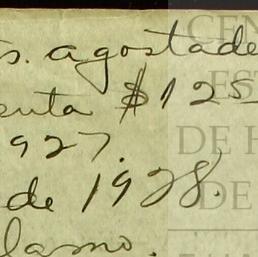 s. agostade
enta $125
927.
de 1928.
lamo.
CEN
EST
DE H
DE